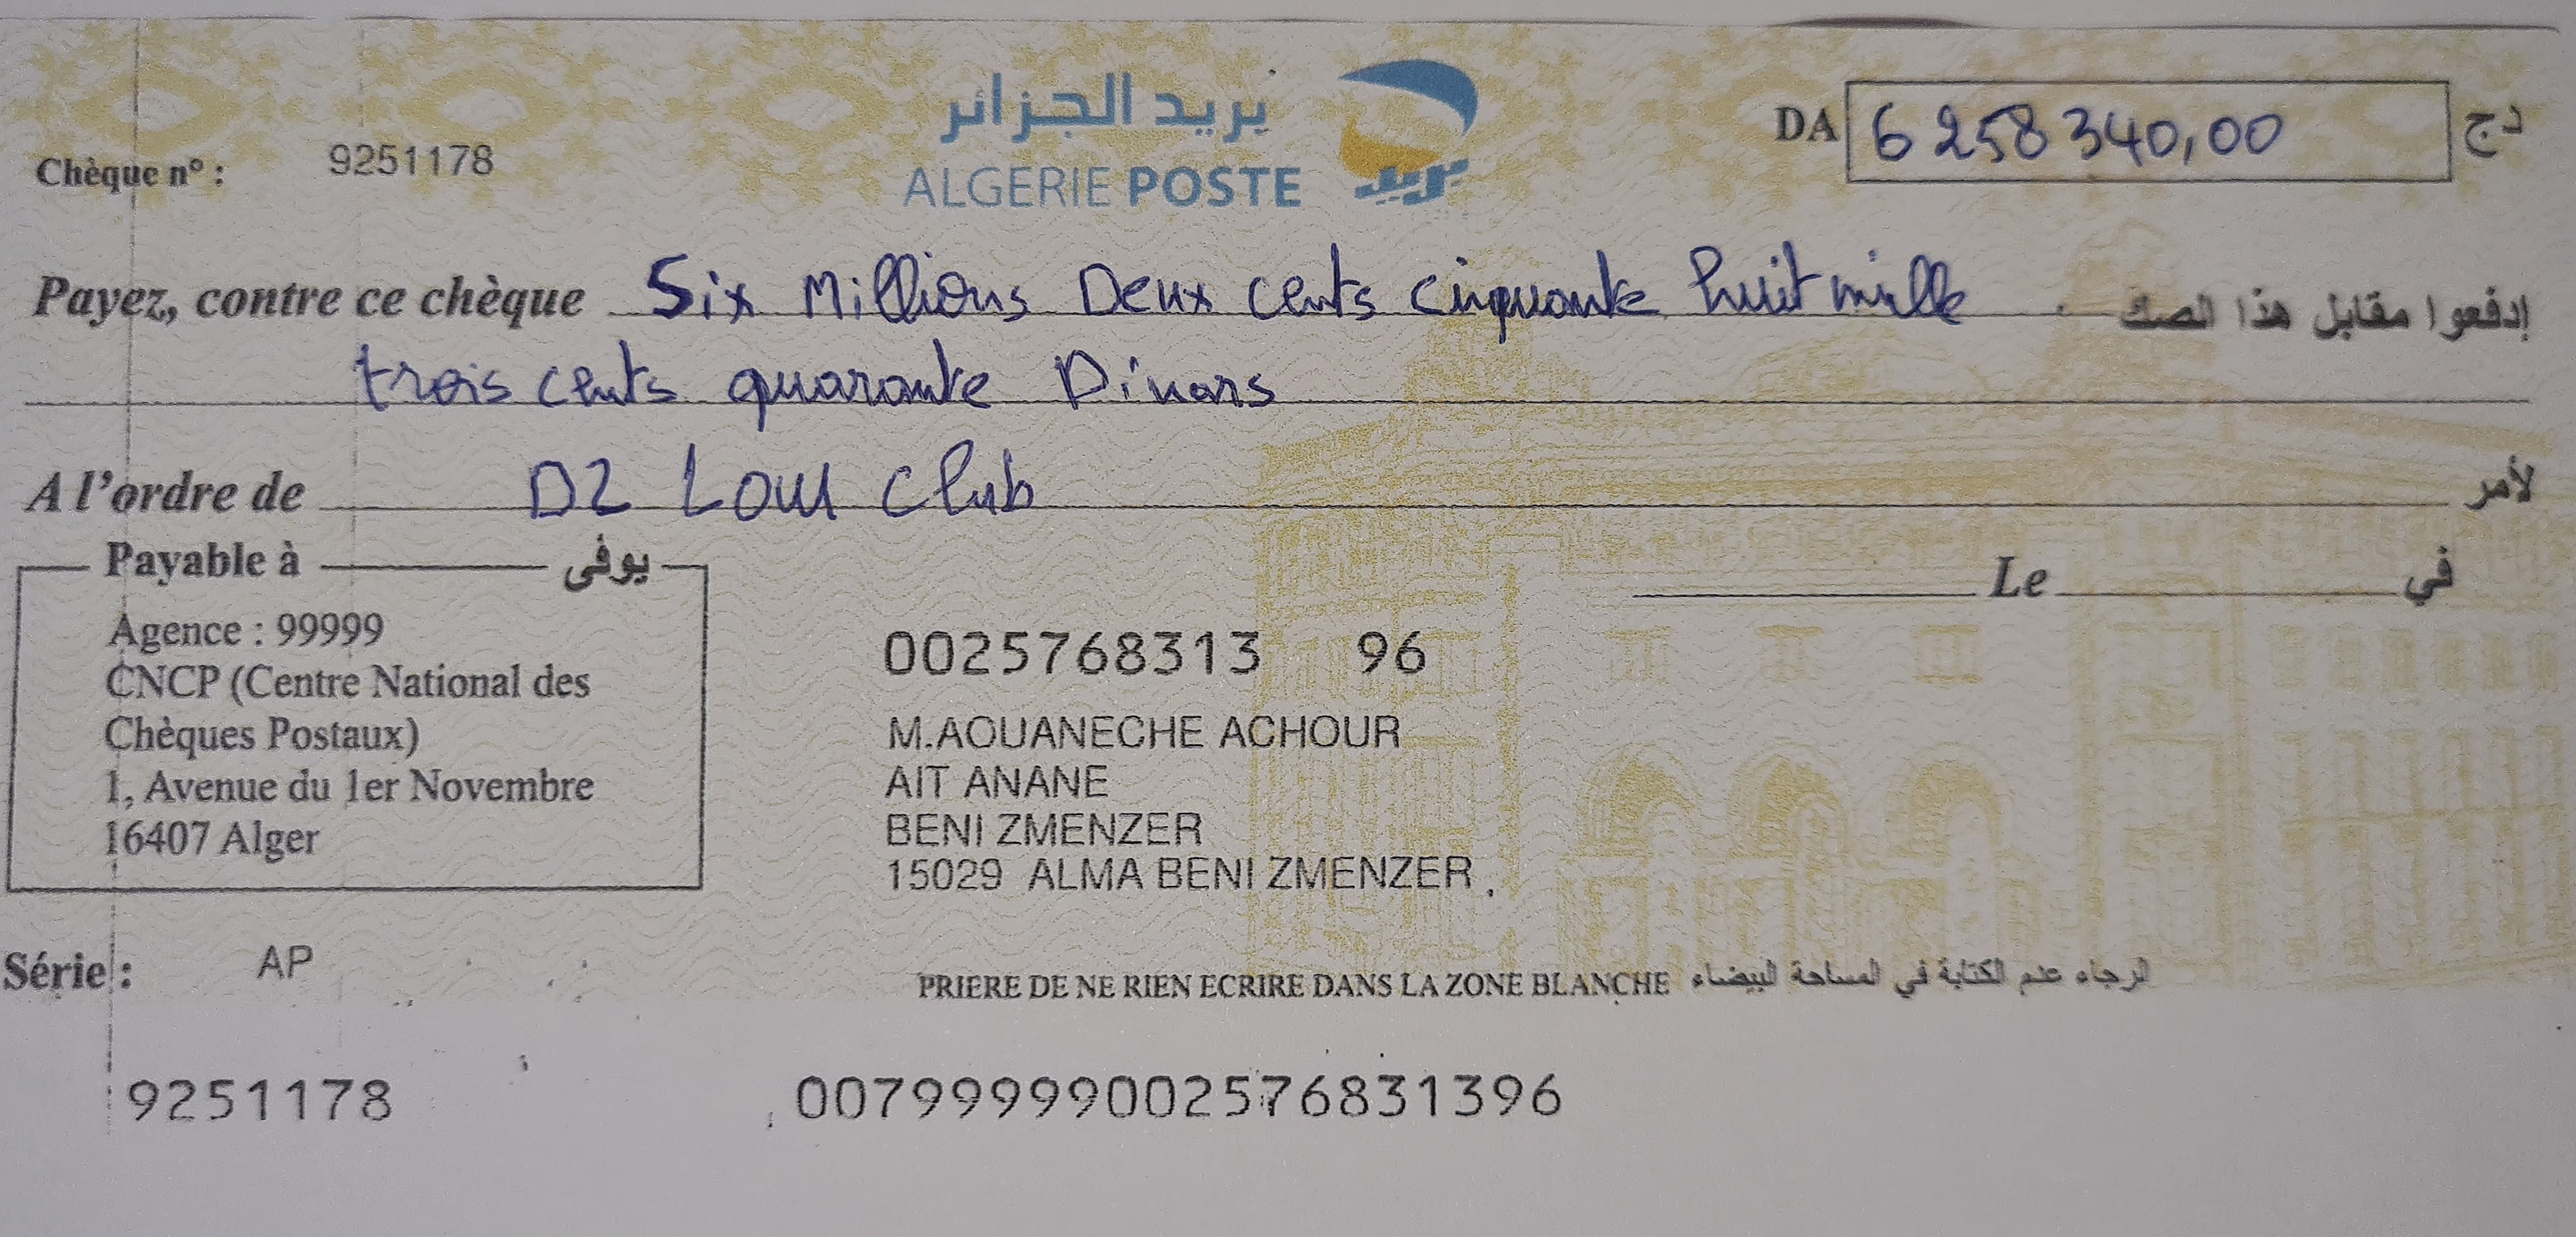 بريد الجزائر
ALGERIE POSTE
بريد
Chèque n° : 9251178
DA 6 258 340,00 دج
Payez, contre ce chèque Six Millions Deux cents cinquante huit mille إدفعوا مقابل هذا الصك
trois cents quarante Dinars
A l'ordre de DZ Low Club لأمر
Payable à يوفى
Le في
Agence : 99999
CNCP (Centre National des
Chèques Postaux)
1, Avenue du 1er Novembre
16407 Alger
0025768313 96
M.AOUANECHE ACHOUR
AIT ANANE
BENI ZMENZER
15029 ALMA BENI ZMENZER
Série : AP
PRIERE DE NE RIEN ECRIRE DANS LA ZONE BLANCHE الرجاء عدم الكتابة في المساحة البيضاء
9251178 00799999002576831396